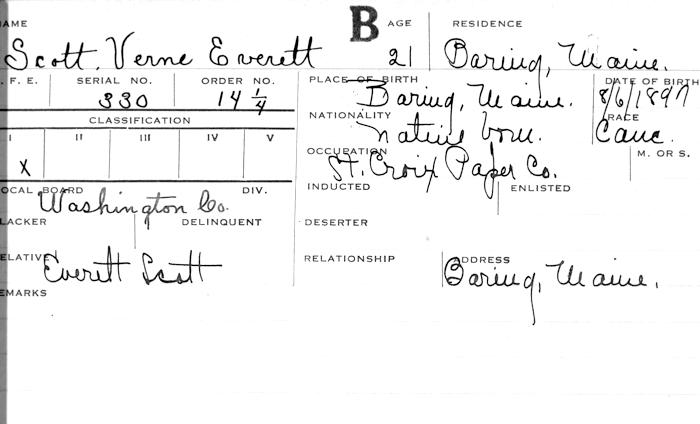 AME B AGE RESIDENCE
Scott, Verne Everett 21 Baring, Maine.
. F. E. SERIAL NO. ORDER NO. PLACE OF BIRTH DATE OF BIRTH
330 14 1/4 Baring, Maine. 8/6/1897
CLASSIFICATION NATIONALITY RACE
I II III IV V Native born. Cauc.
X OCCUPATION M. OR S.
St. Croix Paper Co.
OCAL BOARD DIV. INDUCTED ENLISTED
Washington Co.
LACKER DELINQUENT DESERTER
ELATIVE RELATIONSHIP ADDRESS
Everett Scott Baring, Maine.
EMARKS